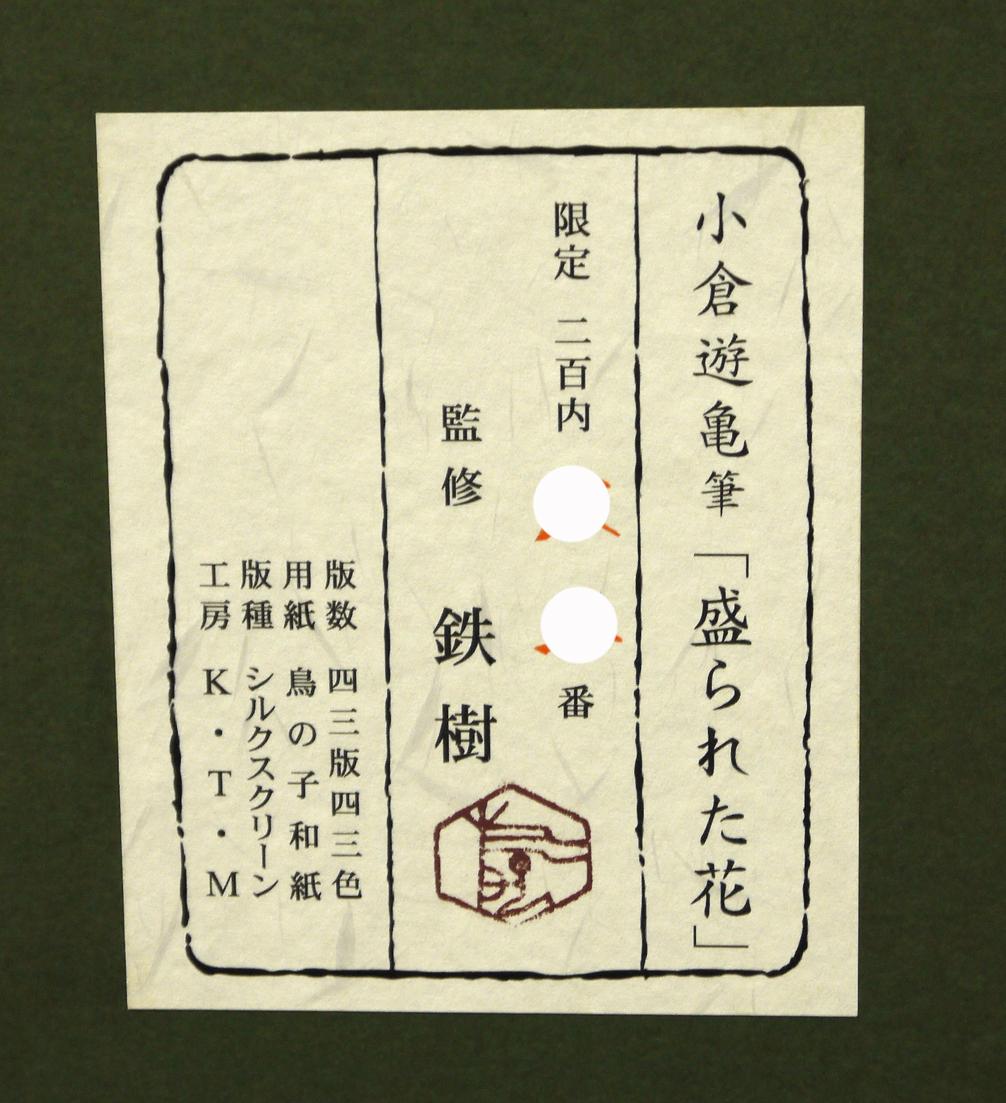 小倉遊亀筆「盛られた花」
限定 二百内 番
監修 鉄樹
版数 四三版四三色
用紙 鳥の子和紙
版種 シルクスクリーン
工房 K・T・M